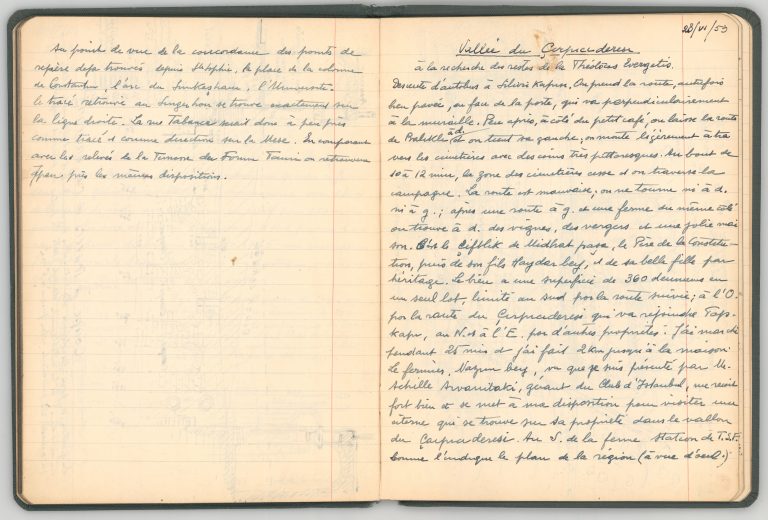 Au point de vue de la concordance des points de
repère deja trouvés depuis Ste Sophie, la place de la colonne
de Constantin, l'arc du Simkeshane, l'Université
le tracé retrouvé au Singerhan se trouve exactement sur
la ligne droite. La rue Tabanca serait donc à peu près
comme tracé et comme direction sur la Mese. En comparant
avec les relevés de la Timosse des Forum Tauri on retrouve
à peu près les mêmes dispositions.
28/VI/53
Vallée du Çırpıcıderesi
à la recherche des restes de la Théotocos Evergetis.
Descente d'autobus à Silivri Kapısı. On prend la route, autrefois
bien pavée, en face de la porte, qui va perpendiculairement
à la muraille. Peu après, à côté du petit café, on laisse la route
de Balikli à d. et on tient sa gauche; on monte légèrement à tra
vers les cimetières avec des coins très pittoresques. Au bout de
10 à 12 mins, la zone des cimetières cesse et on traverse la
campagne. La route est mauvaise; on ne tourne ni à d.
ni à g.; après une route à g. et une ferme du même côté
on trouve à d. des vignes, des vergers et une jolie mai
son. C'est le Çiftlik de Midhat paşa, le Père de la Constitu-
tion, puis de son fils Haydar bey, et de sa belle fille par
héritage. Le bien a une superficie de 360 deunums en
un seul lot, limité au sud par la route suivie; à l'O.
par la route du Çırpıcıderesi qui va rejoindre Top-
kapı, au N. et à l'E. par d'autres propriétés. J'ai marché
pendant 25 mins et j'ai fait 2 km jusqu'à la maison.
Le fermier, Nazım bey, vu que je suis présenté par M.
Achille Arvanitaki, gérant du Club d'Istanbul, me reçoit
fort bien et se met à ma disposition pour visiter une
citerne qui se trouve sur sa propriété dans le vallon
du Çırpıcıderesi. Au S. de la ferme station de T.S.F.
comme l'indique le plan de la région (à vue d'oeil.)